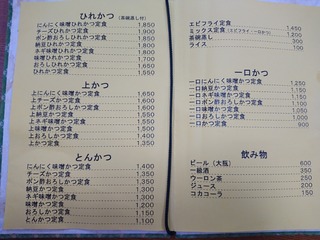 ひれかつ (茶碗蒸し付)
にんにく味噌ひれかつ定食 1,850
チーズひれかつ定食 1,900
ポン酢おろしひれかつ定食 1,800
納豆ひれかつ定食 1,800
ネギ味噌ひれかつ定食 1,800
味噌ひれかつ定食 1,700
おろしひれかつ定食 1,650
ひれかつ定食 1,550
上かつ
にんにく味噌かつ定食 1,650
上チーズかつ定食 1,600
上ポン酢おろしかつ定食 1,550
上納豆かつ定食 1,550
上ネギ味噌かつ定食 1,550
上味噌かつ定食 1,500
上おろしかつ定食 1,450
上かつ定食 1,350
とんかつ
にんにく味噌かつ定食 1,400
チーズかつ定食 1,350
ポン酢おろしかつ定食 1,300
納豆かつ定食 1,300
ネギ味噌かつ定食 1,300
味噌かつ定食 1,200
おろしかつ定食 1,150
とんかつ定食 1,100
エビフライ定食 1,450
ミックス定食 (エビフライ・一口かつ) 1,200
茶碗蒸し 300
ライス 100
一口かつ
一口にんにく味噌かつ定食 1,250
一口納豆かつ定食
一口ネギ味噌かつ定食
一口ポン酢おろしかつ定食
一口味噌かつ定食
一口おろしかつ定食
一口かつ定食 900
飲み物
ビール (大瓶) 600
一級酒 350
ウーロン茶 250
ジュース 200
コカコーラ 150